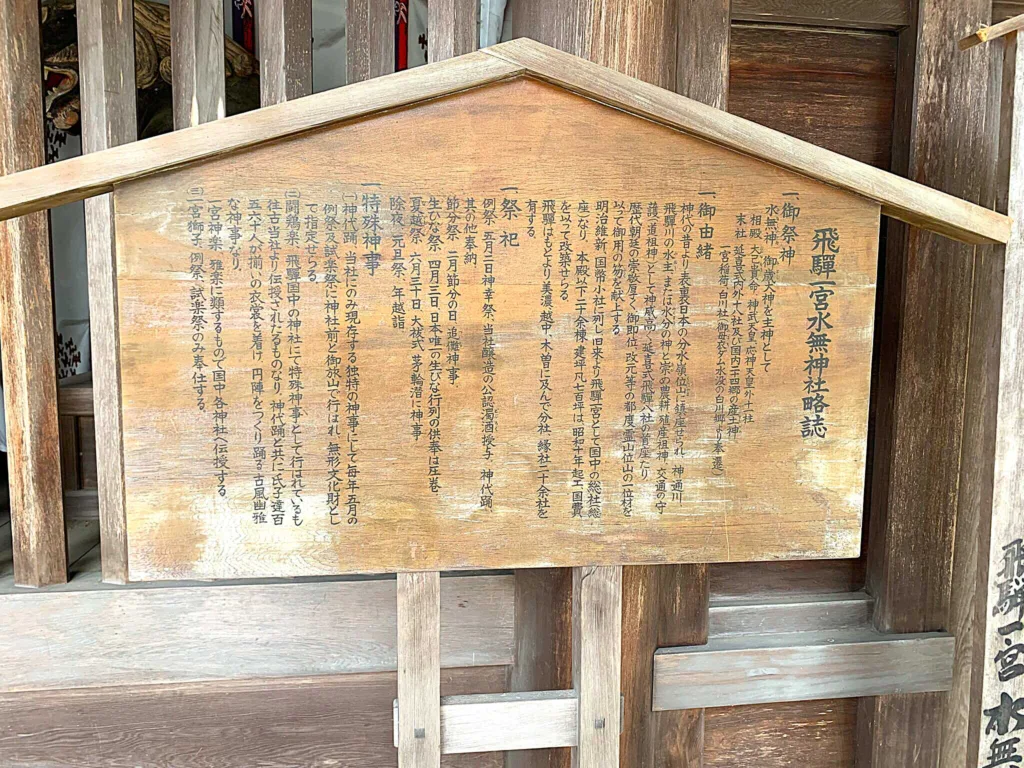 飛驒一宮水無神社略誌
一、御祭神
水無神 御歳大神を主神として
相殿 大己貴命 神武天皇 応神天皇外十一社
末社 延喜式内外十八社及び国内二十四郷の産土神
一宮稲荷 白川社(御母衣ダム水没の白川郷より奉遷)
一、御由緒
神代の昔より表裏日本の分水嶺位山に鎮座せられ、神通川
飛驒川の水主、または水分の神と崇め農耕、殖産祖神、交通の守
護(道祖神)として神威高く、延喜式飛驒八社の首座たり
歴代朝廷の崇敬厚く、御即位、改元等の都度霊山位山の一位材を
以って御用の笏を献上する。
明治維新、国幣小社に列し旧来より飛驒一宮として国中の総社(総
座)なり、本殿以下二十余棟、建坪凡七百坪は昭和十年起工国費
を以って改築せらる。
飛驒はもとより美濃、越中、木曽に及んで分社、縁社二十余社を
有する。
一、祭祀
例祭 五月二日神幸祭、当社醸造の公認濁酒授与 神代踊、
其の他奉納、
節分祭 二月節分の日 追儺神事
生びな祭 四月三日 日本唯一の生びな行列の供奉は圧巻、
夏越祭 六月三十日 大祓式 茅輪潜に神事
除夜、元旦祭 年越詣
一、特殊神事
㈠神代踊、当社にのみ現存する独特の神事にして毎年五月の
例祭及試楽祭に神社前と御旅山で行はれ、無形文化財とし
て指定せらる
㈡闘鶏楽、飛驒国中の神社にて特殊神事として行はれているも
往古当社より伝授されたるものなり、神代踊と共に氏子達百
五六十人が揃いの衣裳を着け、円陣をつくり踊る古風幽雅
な神事なり、
一宮神楽、雅楽に類するもので国中、各神社へ伝授する
㈢一宮獅子、例祭、試楽祭のみ奉仕する、
飛驒一宮水無